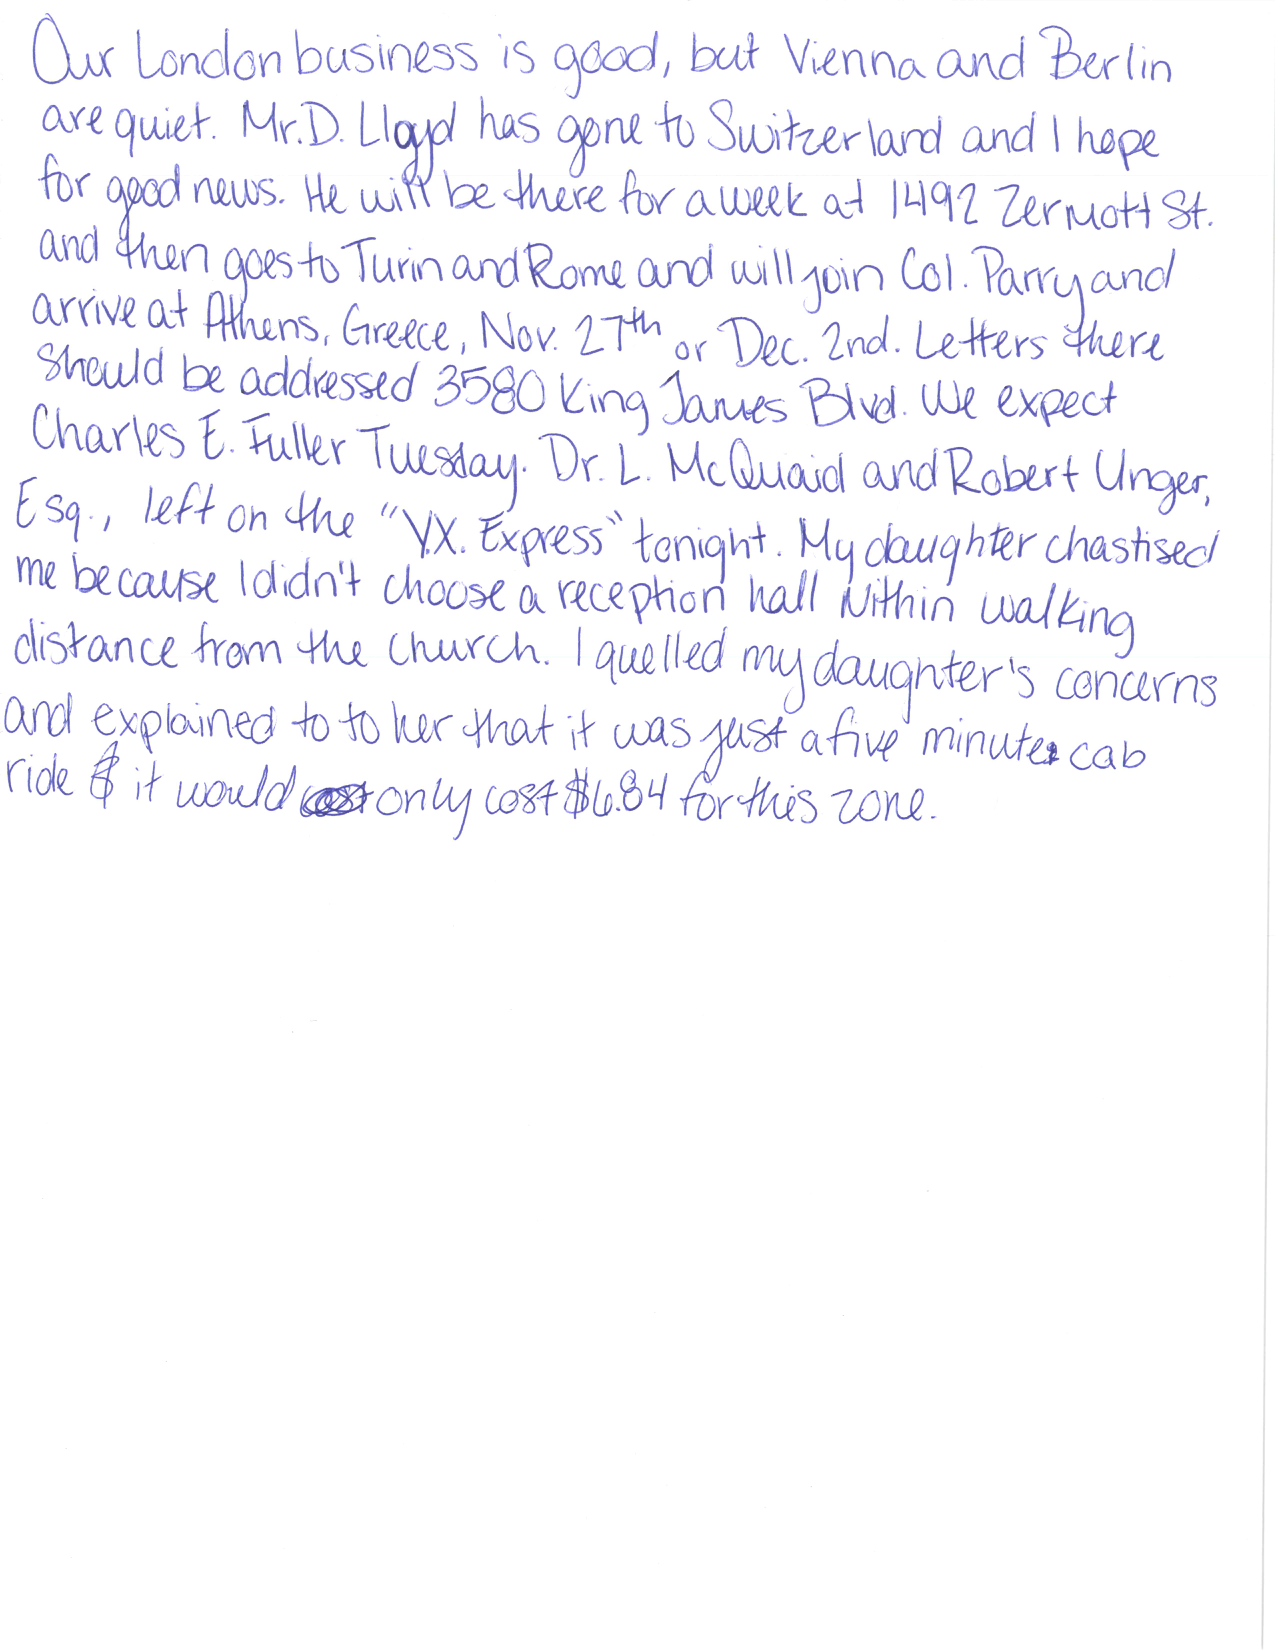 Our London business is good, but Vienna and Berlin
are quiet. Mr. D. Lloyd has gone to Switzerland and I hope
for good news. He will be there for a week at 1492 Zermott St.
and then goes to Turin and Rome and will join Col. Parry and
arrive at Athens, Greece, Nov. 27th or Dec. 2nd. Letters there
should be addressed 3580 King James Blvd. We expect
Charles E. Fuller Tuesday. Dr. L. McQuaid and Robert Unger,
Esq., left on the "Y.X. Express" tonight. My daughter chastised
me because I didn't choose a reception hall within walking
distance from the church. I quelled my daughter's concerns
and explained to to her that it was just a five minute cab
ride & it would only cost $6.84 for this zone.